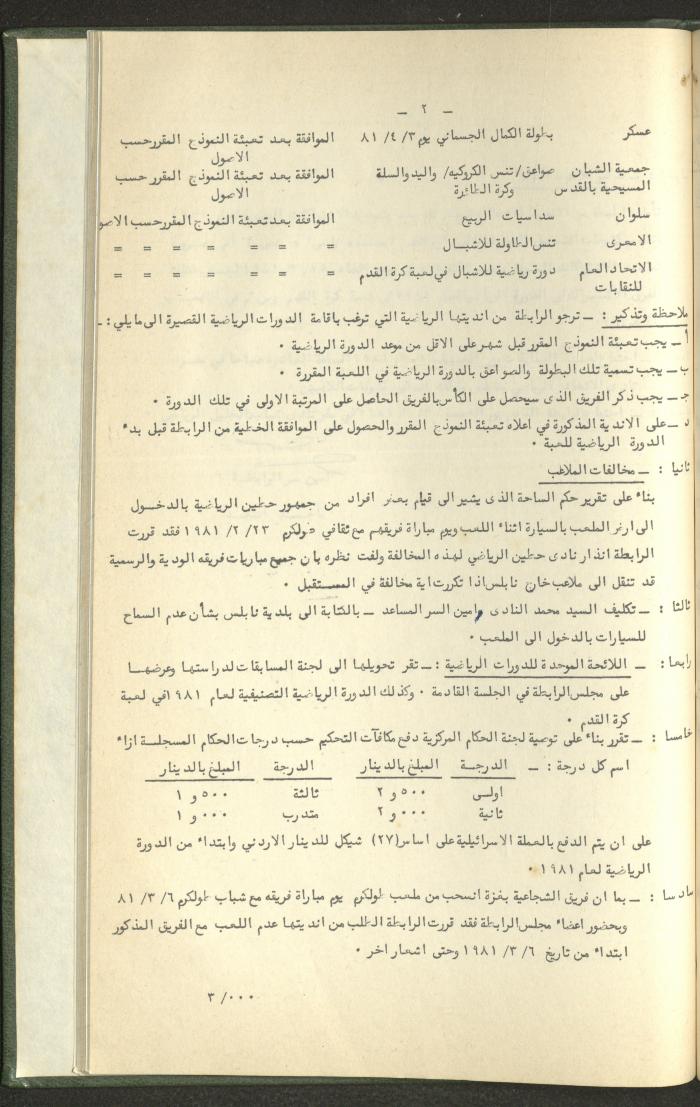 ـ ٢ ـ
عسكر بطولة الكمال الجسماني يوم ٣/ ٤/ ٨١ الموافقة بعد تعبئة النموذج المقرر حسب
الاصول
جمعية الشبان صواعق/ تنس الكروكيه/ واليد والسلة الموافقة بعد تعبئة النموذج المقرر حسب
المسيحية بالقدس وكرة الطائرة الاصول
سلوان سداسيات الربيع الموافقة بعد تعبئة النموذج المقرر حسب الاصو
الامعرى تنس الطاولة للاشبال = = = = = = =
الاتحاد العام دورة رياضية للاشبال في لعبة كرة القدم = = = = = = =
للنقابات
ملاحظة وتذكير : ـ ترجو الرابطة من انديتها الرياضية التي ترغب باقامة الدورات الرياضية القصيرة الى مايلي : ـ
أ ـ يجب تعبئة النموذج المقرر قبل شهر على الاقل من موعد الدورة الرياضية ٠
ب ـ يجب تسمية تلك البطولة والصواعق بالدورة الرياضية في اللعبة المقررة ٠
جـ ـ يجب ذكر الفريق الذى سيحصل على الكأس بالفريق الحاصل على المرتبة الاولى في تلك الدورة ٠
د ـ على الاندية المذكورة في اعلاه تعبئة النموذج المقرر والحصول على الموافقة الخطية من الرابطة قبل بدء
الدورة الرياضية للعبة ٠
ثانيا : ـ مخالفات الملاعب
بناء على تقرير حكم الساحة الذى يشير الى قيام بعض افراد من جمهور حطين الرياضية بالدخول
الى ارض الملعب بالسيارة اثناء اللعب ويوم مباراة فريقهم مع ثقافي طولكرم ٢٣/ ٢/ ١٩٨١ فقد قررت
الرابطة انذار نادى حطين الرياضي لهذه المخالفة ولفت نظره بان جميع مباريات فريقه الودية والرسمية
قد تنقل الى ملاعب خان نابلس اذا تكررت اية مخالفة في المستقبل ٠
ثالثا : ـ تكليف السيد محمد النادى امين السر المساعد ـ بالكتابة الى بلدية نابلس بشأن عدم السماح
للسيارات بالدخول الى الملعب ٠
رابعا : ـ اللائحة الموحدة للدورات الرياضية : ـ تقر تحويلها الى لجنة المسابقات لدراستها وعرضها
على مجلس الرابطة في الجلسة القادمة ٠ وكذلك الدورة الرياضية التصنيفية لعام ١٩٨١ في لعبة
كرة القدم ٠
خامسا : ـ تقرر بناء على توصية لجنة الحكام المركزية دفع مكافآت التحكيم حسب درجات الحكام المسجلة ازاء
اسم كل درجة : ـ الدرجة المبلغ بالدينار الدرجة المبلغ بالدينار
اولى ٥٠٠ و ٢ ثالثة ٥٠٠ و ١
ثانية ٠٠٠ و ٢ متدرب ٠٠٠ و ١
على ان يتم الدفع بالعملة الاسرائيلية على اساس (٢٧) شيكل للدينار الاردني وابتداء من الدورة
الرياضية لعام ١٩٨١ ٠
سادسا : ـ بما ان فريق الشجاعية بغزة انسحب من ملعب طولكرم يوم مباراة فريقه مع شباب طولكرم ٦/ ٣/ ٨١
وبحضور اعضاء مجلس الرابطة فقد قررت الرابطة الطلب من انديتها عدم اللعب مع الفريق المذكور
ابتداء من تاريخ ٦/ ٣/ ١٩٨١ وحتى اشعار اخر ٠
٠٠٠/ ٣